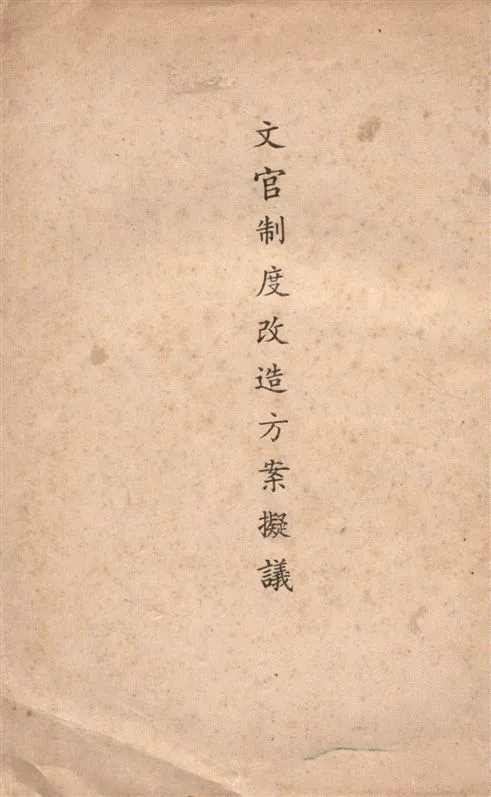 文官制度改造方案擬議